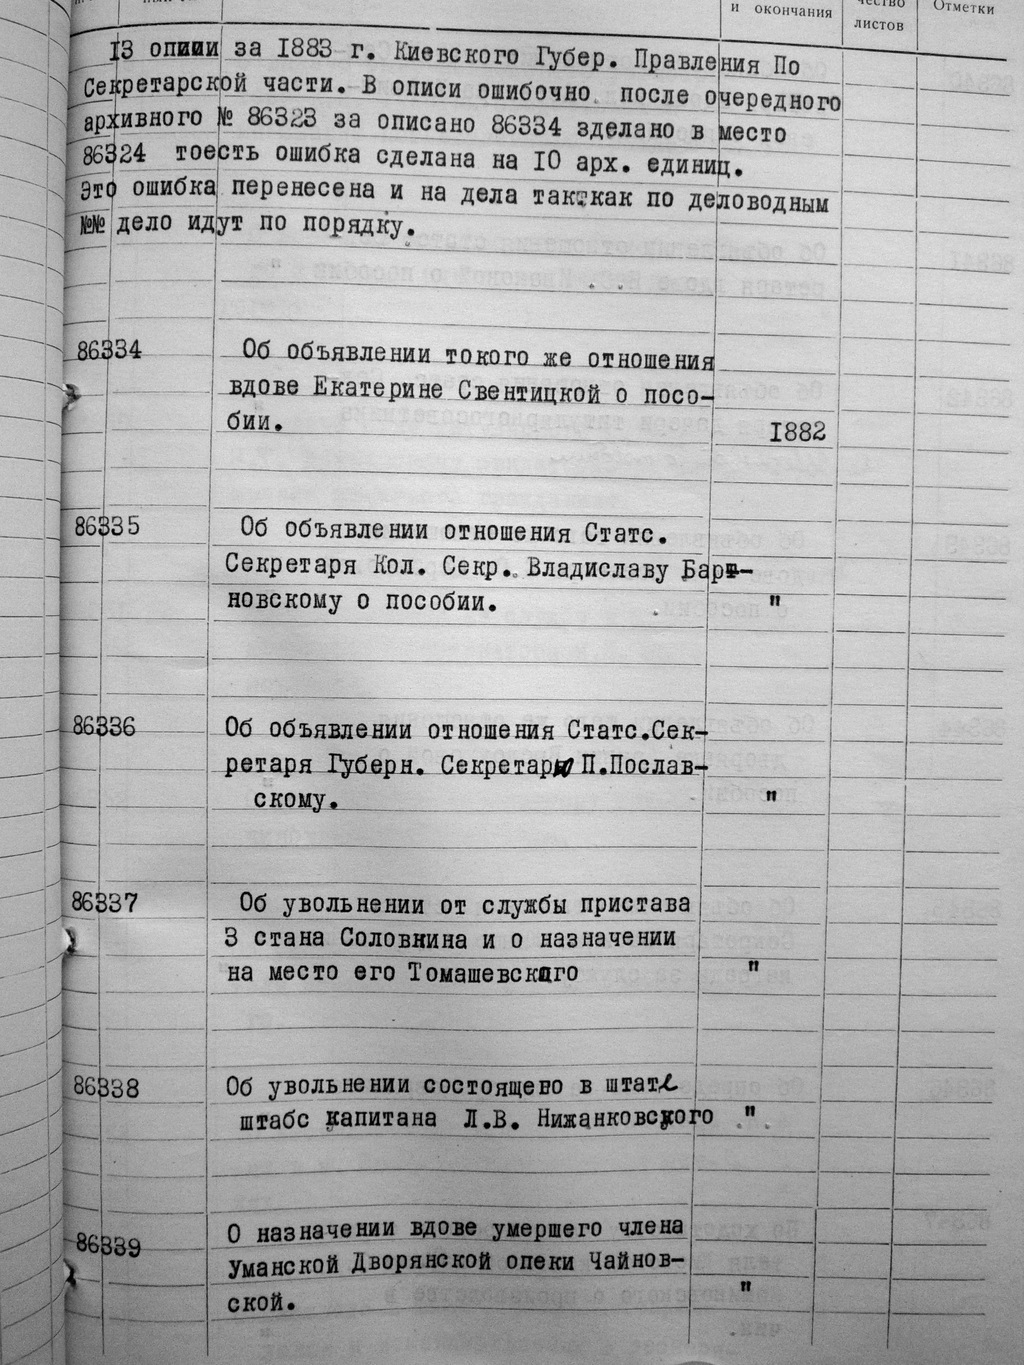 и окончания
чество
листов
Отметки
13 описи за 1883 г. Киевского Губер. Правления По
Секретарской части. В описи ошибочно после очередного
архивного № 86323 за описано 86334 зделано в место
86324 тоесть ошибка сделана на 10 арх. единиц.
Это ошибка перенесена и на дела так:как по деловодным
№№ дело идут по порядку.
86334 Об объявлении токого же отношения
вдове Екатерине Свентицкой о посо-
бии. 1882
86335 Об объявлении отношения Статс.
Секретаря Кол. Секр. Владиславу Бар-
новскому о пособии. "
86336 Об объявлении отношения Статс.Сек-
ретаря Губерн. Секретарю П.Послав-
скому. "
86337 Об увольнении от службы пристава
3 стана Соловкина и о назначении
на место его Томашевского "
86338 Об увольнении состоящево в штате
штабс капитана Л.В. Нижанковского "
86339 О назначении вдове умершего члена
Уманской Дворянской опеки Чайнов-
ской. "